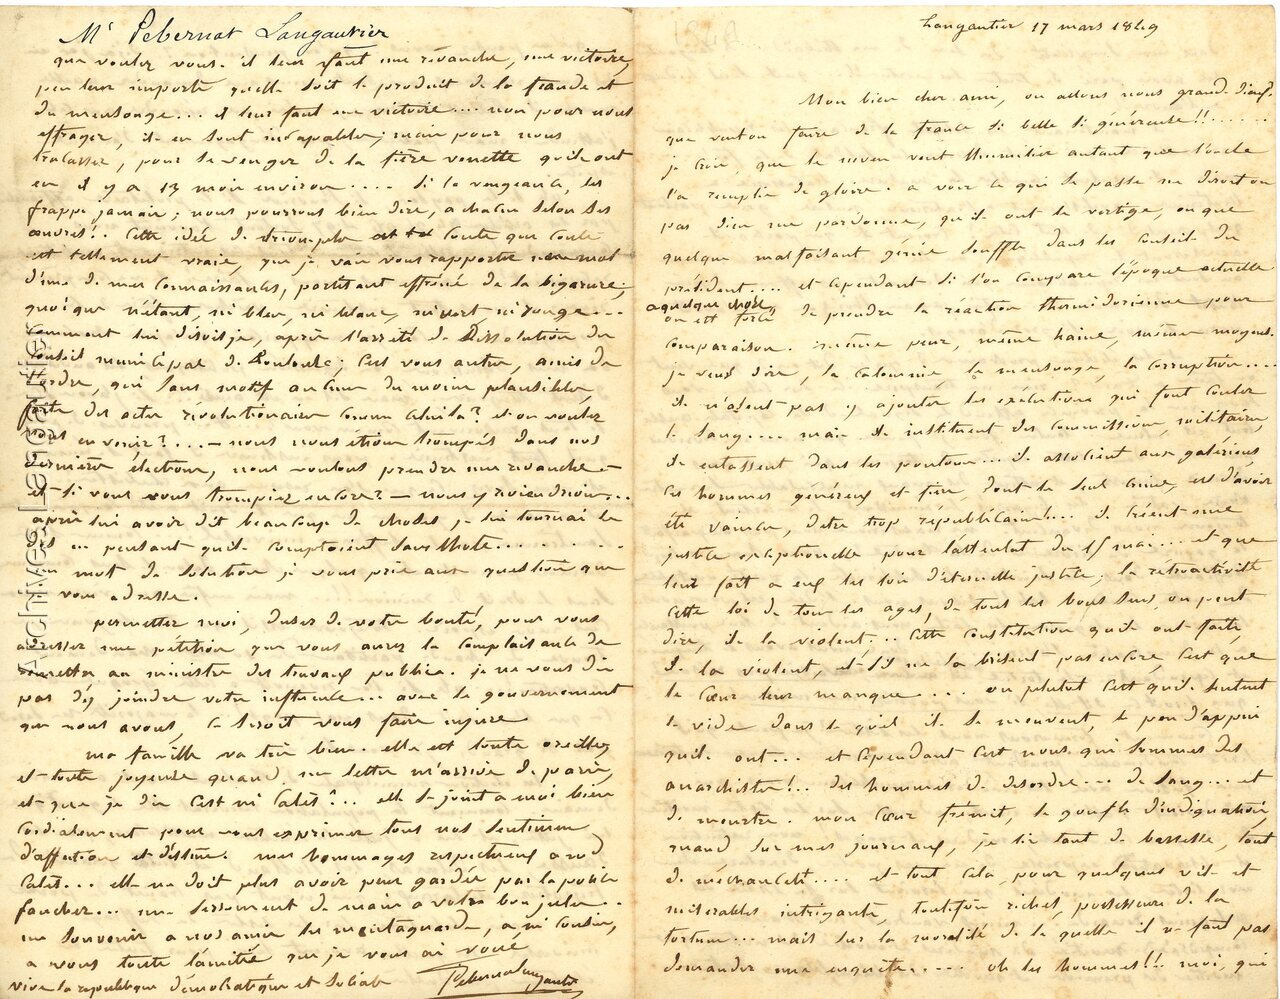 Langautier 17 mars 1849
Mon bien cher ami, ou allons nous grand-dieu!-
que veut-on faire de la france si belle si généreuse!!......
je crois, que le neveu veut l'humilier autant que l'oncle
l'a remplie de gloire. a voir ce qui se passe ne diroit on
pas dieu me pardonne, qu'ils ont le vertige, ou que
quelque malfaisant génie souffle dans les conseils du
président.... et cependant si l'on compare l'époque actuelle
a quelque chose
on est forcé de prendre la réaction thermidorienne pour
comparaison. même peur, même haine, même moyens.
je veux dire, la calomnie, le mensonge, la corruption....
ils n'osent pas y ajouter les exécutions qui font couler
le sang.... mais ils instituent des commissions militaires,
ils entassent dans les pontons... ils associent aux galériens
ces hommes généreux et fiers, dont le seul crime, est d'avoir
été vaincu, d'etre trop républicains!... ils créent une
justice exceptionelle pour l'attentat du 15 mai... et que
leur fait a eux les lois d'éternelle justice; la rétroactivité
cette loi de tous les ages, de tous les bons sens, on peut
dire, ils la violent;... cette constitution qu'ils ont faite,
ils la violent, et s'ils ne la brisent pas encore, c'est que
le cœur leur manque.... ou plutot c'est qu'ils sentent
le vide dans le quel ils se meuvent, le peu d'appui
qu'ils ont... et cependant c'est nous qui sommes des
anarchistes!.. des hommes de désordre... de sang... et
de meurtre. mon cœur frémit, se gonfle d'indignation,
quand sur mes journaux, je lis tant de bassesse, tant
de méchanceté.... et tout cela, pour quelques vils et
miserables intrigants, toutefois riches, possesseurs de la
fortune... mais sur la moralité de la quelle il ne faut pas
demander une enquête..... oh les hommes!!! moi, qui
Mr Pebernat Langautier
que voulez vous. il leur faut une révanche, une victoire,
peu leur importe qu'elle soit le produit de la fraude et
du mensonge... il leur faut une victoire... non pour nous
effrayer, ils en sont incapables; mais pour nous
tracasser, pour se venger de la fière venette qu'ils ont
eu il y a 13 mois environ.... si la vengeance, les
frappe jamais; nous pourrons bien dire, a chacun selon ses
œuvres!. Cette idée de triompher coute que coute
est tellement vraie, que je vais vous rapporter un mot
d'une de mes connaissances, partisant effréné de la bigarure,
quoique n'étant, ni bleu, ni blanc, ni vert ni rouge...
comment lui disois je, après l'arrêté de dissolution du
conseil municipal de Toulouse; c'est vous autres, amis de
l'ordre, qui sans motif aucun du moins plausible,
faite des actes révolutionaires comme celuila? et ou voulez
vous en venir?.... — nous nous étions trompés dans nos
dernières élections, nous voulons prendre une revanche —
et si vous vous trompiez encore? — nous y reviendrions...
après lui avoir dit beaucoup de choses je lui tournai le
dos en pensant qu'ils comptoient sans l'hote........
un mot de solution je vous prie aux questions que
je vous adresse.
permettez moi, d'user de votre bonté, pour vous
adresser une pétition que vous aurez la complaisance de
remettre au ministre des travaux publics. je ne vous dis
pas d'y joindre votre influence... avec le gouvernement
que nous avons, ce seroit vous faire injure
ma famille va très bien. elle est toute oreilles
et toute joyeuse quand, une lettre m'arrive de paris,
et que je dis c'est mr Calès!... elle se joint a moi bien
cordialement pour vous exprimer tous nos sentimens
d'affection et d'éstime. mes hommages respectueux a md
Calès... elle ne doit plus avoir peur gardée par la police
faucher... un serrement de main a votre bon jules..
un souvenir a nos amis les montagnards, a mr Cousin,
a vous toute l'amitié que je vous ai voué
vive la republique démocratique et sociale
Pebernat Langautier
Archives Langautier